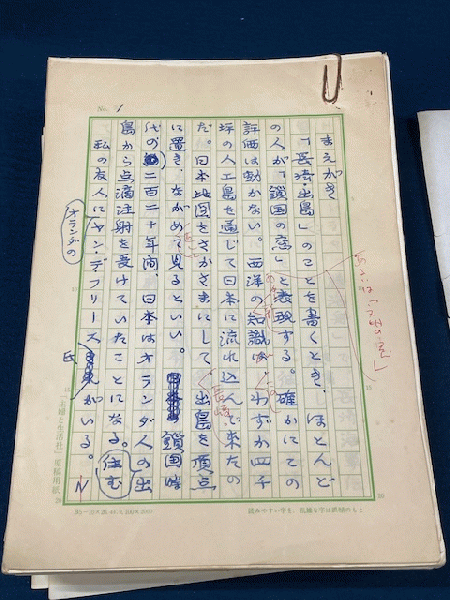 No. 1
まえがき
「長崎・出島」のことを書くとき、ほとんど
の人が「鎖国の窓」と表現する。確かにその
評価は動かない。西洋の知識は、わずか四千
坪の人工島を通じて日本に流れ込んで来たの
だ。日本地図をさかさまにして、出島を頂点
長崎・
に置き、ながめて見るといい。鎖国時
代の二百二十年間、日本はオランダ人の出
住む
島から点滴注射を受けていたことになる。
オランダの
私の友人にヤン・デフリース がいる。
氏
「主婦と生活社」原稿用紙